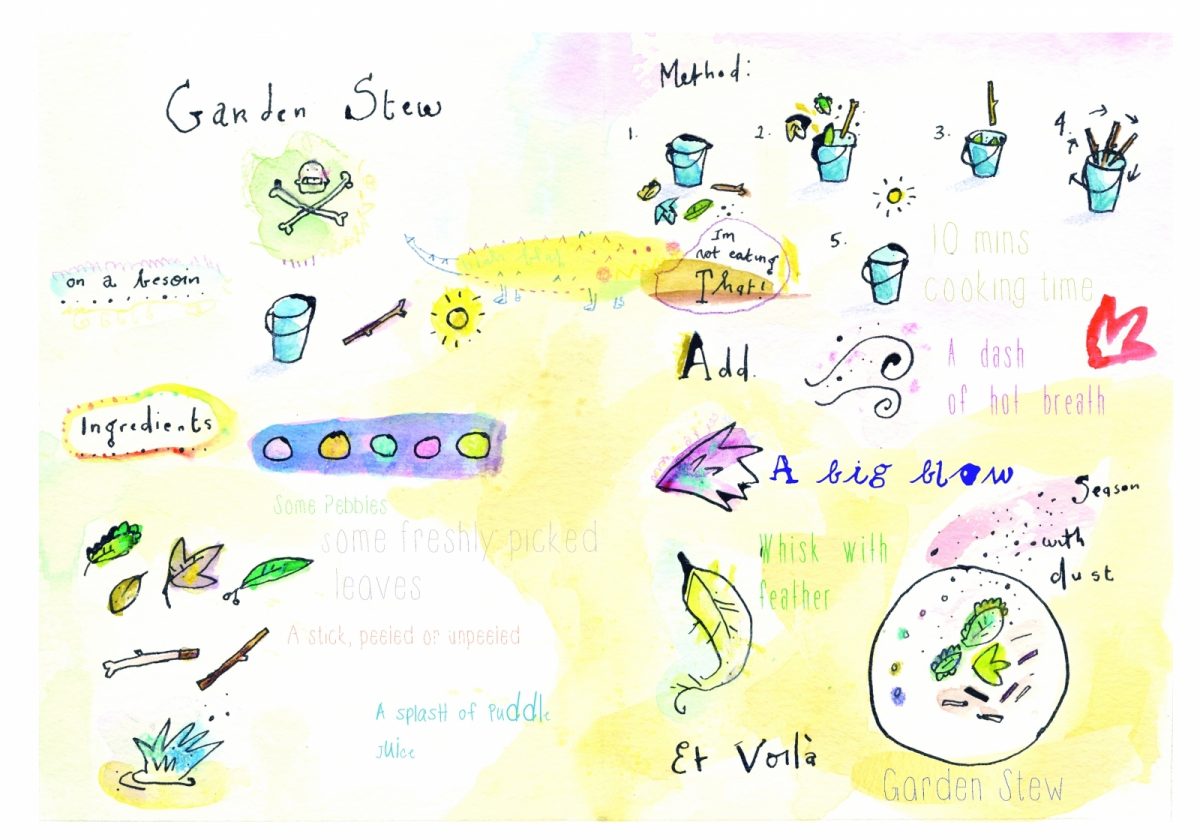 Garden Stew
on a besoin
Ingredients
Some Pebbles
some freshly picked
leaves
A stick, peeled or unpeeled
A splash of puddle
juice
Method:
1.
2.
3.
4.
Im
not eating
That!
5.
10 mins
cooking time
Add.
A dash
of hot breath
A big blow
Whisk with
feather
Season
with
dust
Et Voilà
Garden Stew